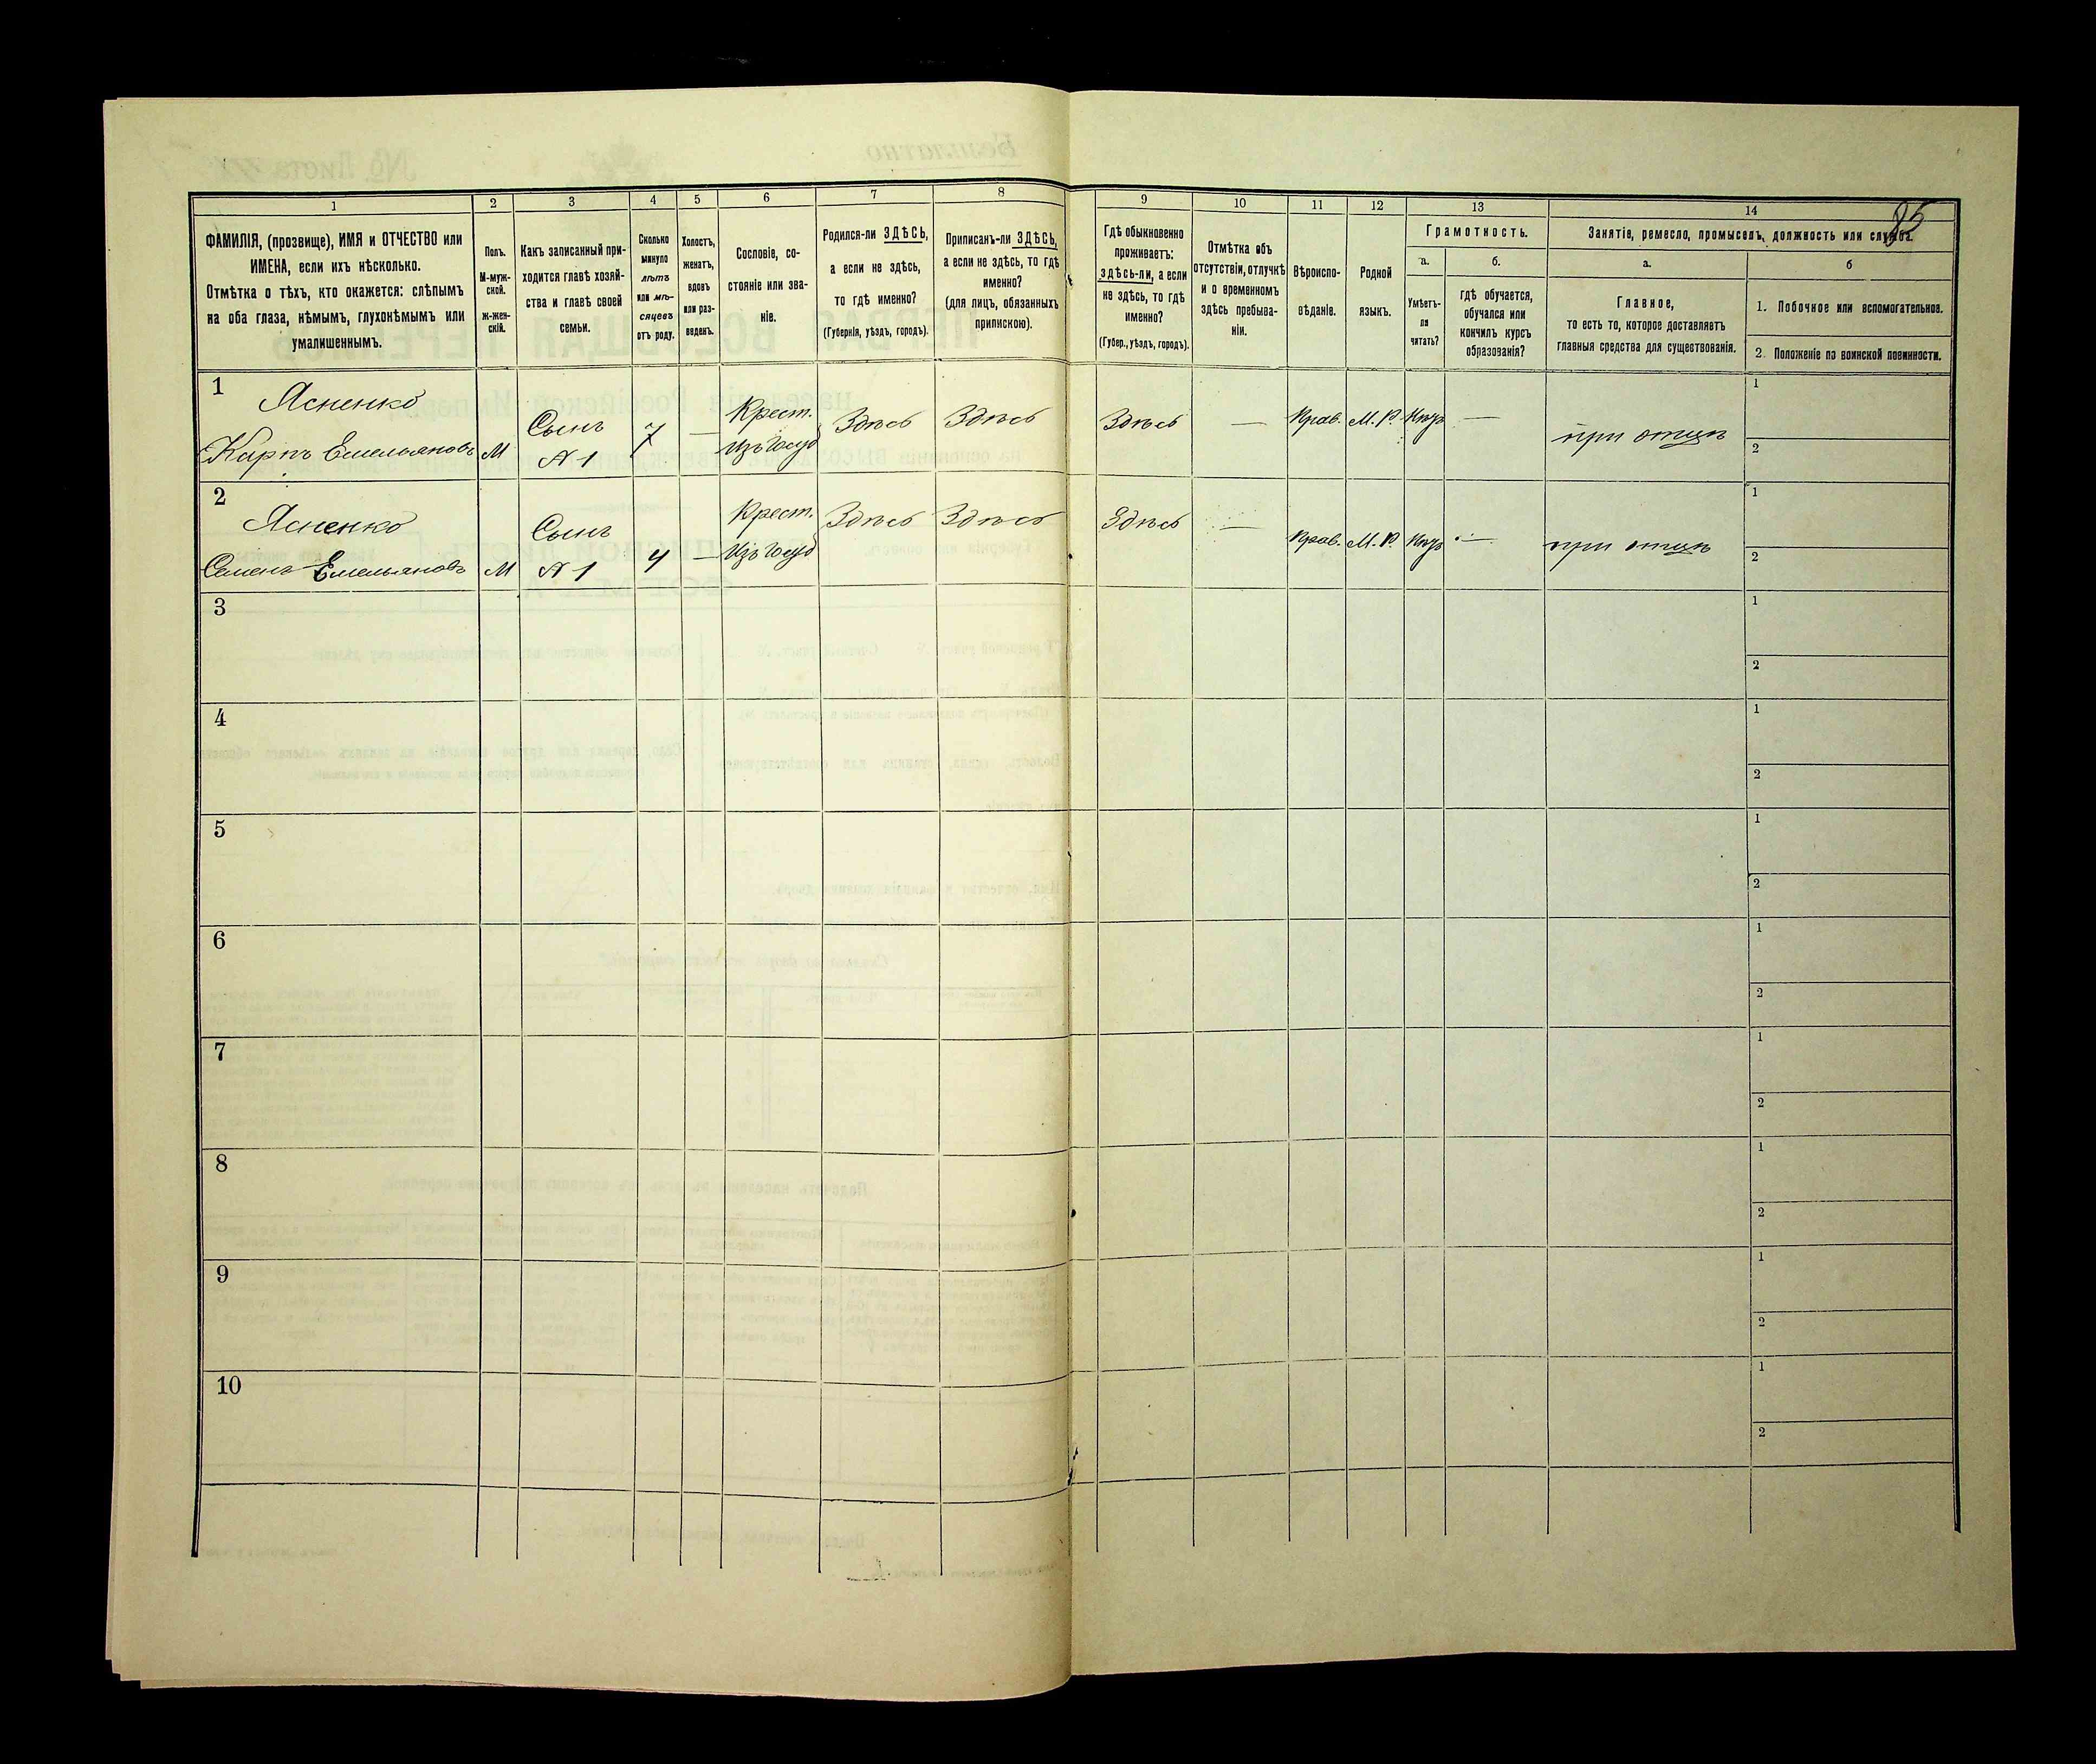 85
1 2 3 4 5 6 7 8 9 10 11 12 13 14
ФАМИЛІЯ, (прозвище), ИМЯ и ОТЧЕСТВО или
ИМЕНА, если ихъ нѣсколько.
Отмѣтка о тѣхъ, кто окажется: слѣпымъ
на оба глаза, нѣмымъ, глухонѣмымъ или
умалишеннымъ.
Полъ.
М-муж-
ской.
ж-жен-
скій.
Какъ записанный при-
ходится главѣ хозяй-
ства и главѣ своей
семьи.
Сколько
минуло
лѣтъ
или мѣ-
сяцевъ
отъ роду.
Холостъ,
женатъ,
вдовъ
или раз-
веденъ.
Сословіе, со-
стояніе или зва-
ніе.
Родился-ли ЗДѢСЬ,
а если не здѣсь,
то гдѣ именно?
(Губернія, уѣздъ, городъ).
Приписанъ-ли ЗДѢСЬ,
а если не здѣсь, то гдѣ
именно?
(для лицъ, обязанныхъ
припискою).
Гдѣ обыкновенно
проживаетъ:
здѣсь-ли, а если
не здѣсь, то гдѣ
именно?
(Губер., уѣздъ, городъ).
Отмѣтка объ
отсутствіи, отлучкѣ
и о временномъ
здѣсь пребыва-
ніи.
Вѣроиспо-
вѣданіе.
Родной
языкъ.
Грамотность.
а.
Умѣетъ-
ли
читать?
б.
гдѣ обучается,
обучался или
кончилъ курсъ
образованія?
Занятіе, ремесло, промыселъ, должность или служба.
а.
Главное,
то есть то, которое доставляетъ
главныя средства для существованія.
б
1. Побочное или вспомогательное.
2. Положеніе по воинской повинности.
1
Ясненко
Карпъ Емельяновъ
М
Сынъ
№ 1
7
—
Крест.
Изъ Госуд
Здѣсь
Здѣсь
Здѣсь
—
Прав.
М. Р.
—
при отцѣ
1
2
2
Ясненко
Семенъ Емельяновъ
М
Сынъ
№ 1
4
—
Крест.
Изъ Госуд
Здѣсь
Здѣсь
Здѣсь
—
Прав.
М. Р.
—
при отцѣ
1
2
3
1
2
4
1
2
5
1
2
6
1
2
7
1
2
8
1
2
9
1
2
10
1
2